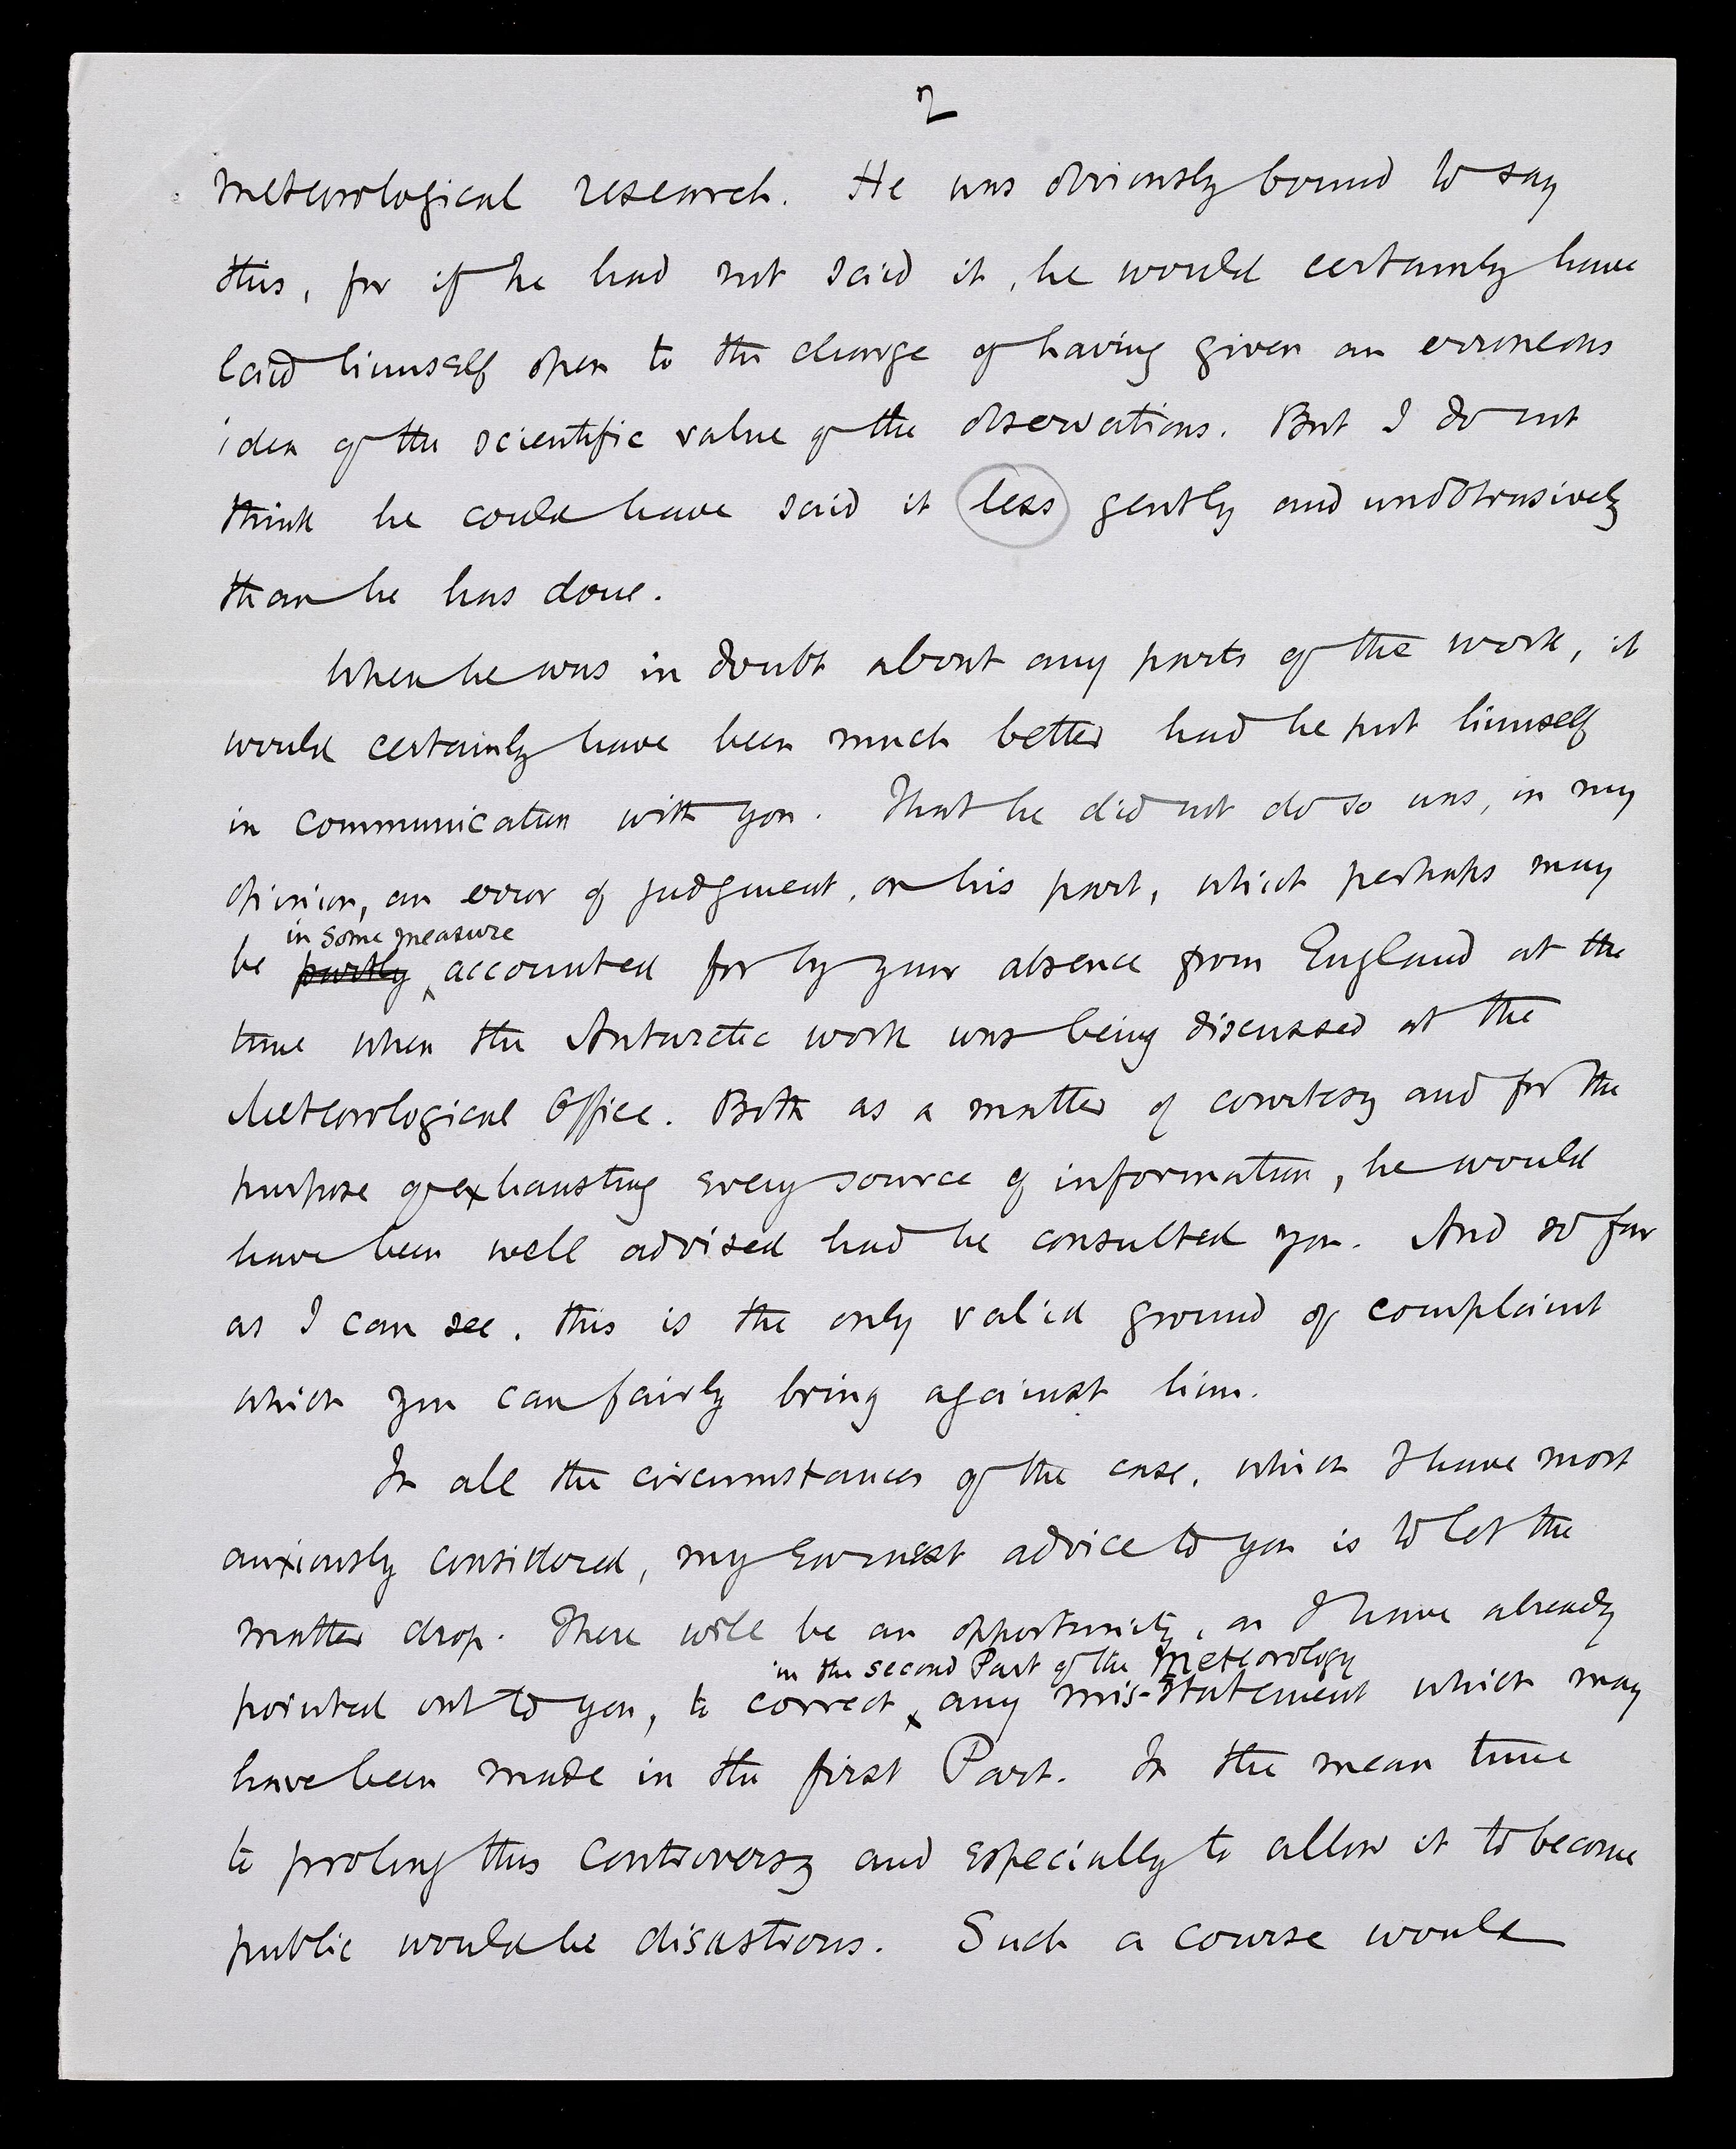 2
meteorological research. He was obviously bound to say
this, for if he had not said it, he would certainly have
laid himself open to the charge of having given an erroneous
idea of the scientific value of the observations. But I do not
think he could have said it less gently and unobtrusively
than he has done.
When he was in doubt about any parts of the work, it
would certainly have been much better had he put himself
in communication with you. That he did not do so was, in my
opinion, an error of judgment, on his part, which perhaps may
in some measure
be partly accounted for by your absence from England at the
time when the Antarctic work was being discussed at the
Meteorological Office. Both as a matter of courtesy and for the
purpose of exhausting every source of information, he would
have been well advised had he consulted you. And so far
as I can see, this is the only valid ground of complaint
which you can fairly bring against him.
In all the circumstances of the case, which I have most
anxiously considered, my earnest advice to you is to let the
matter drop. There will be an opportunity, as I have already
in the second Part of the Meteorology
pointed out to you, to correct any mis-statement which may
have been made in the first Part. In the mean time
to prolong this controversy and especially to allow it to become
public would be disastrous. Such a course would